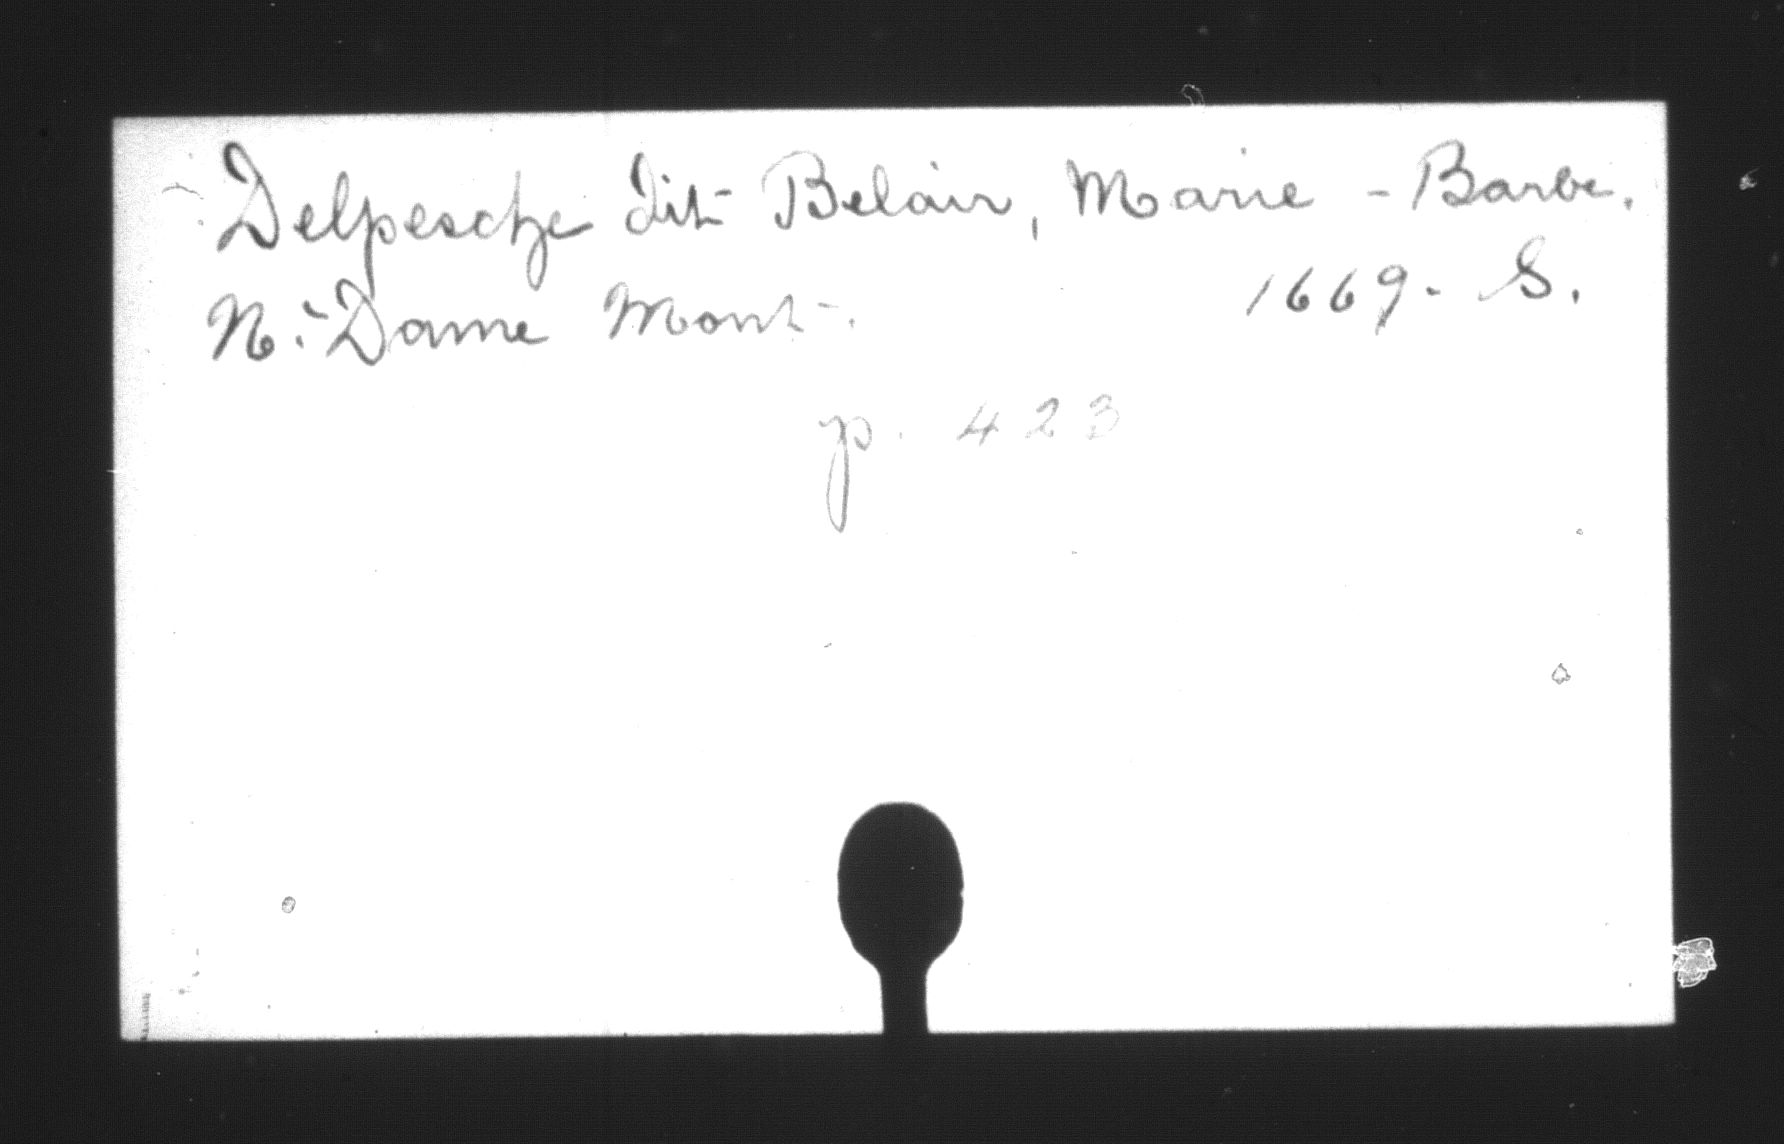 Delpesche dit Belair, Marie - Barbe.
N.-Dame Mont-. 1669. S.
p. 423